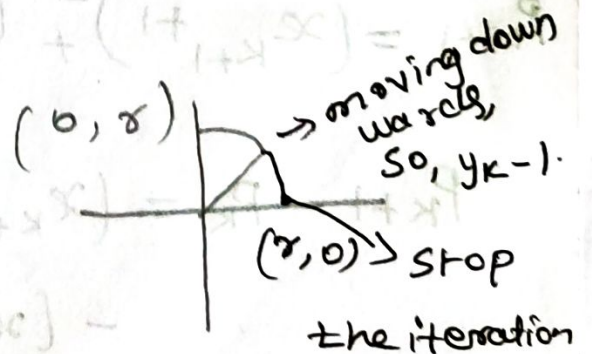 (0, r)
→ moving down
wards,
so, yₖ-1.
(r, 0) → stop
the iteration